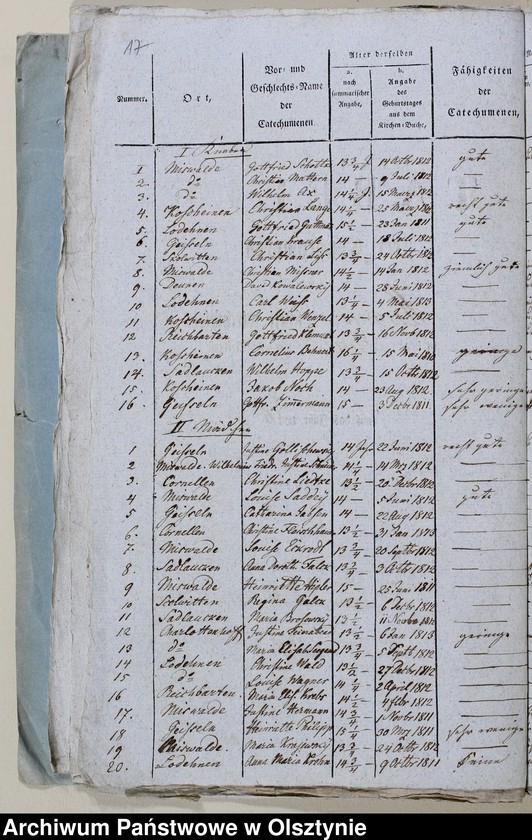 17
Nummer.
Ort,
Vor- und
Geschlechts-Name
der
Catechumenen.
Alter derselben
a.
nach
summarischer
Angabe,
b.
Angabe
des
Geburtstages
aus dem
Kirchen-Buche,
Fähigkeiten
der
Catechumenen,
I Knaben
1 Miswalde Gottfried 13 3/4 J 14 Octb 1812 gute
2. do Christian Mattern 14 — 9 Juli 1812 —
3. do Wilhelm Ax 14 1/4 J. 15 Maerz 1812 —
4. Koschainen Christian Lange 14 1/4 — 25 Maerz recht gute
5. Lodehnen Gottfried 15 1/4 — 23 Jan 1811 gute
6. Geisseln Christian Krause 14 — 18 Juli 1812 —
7. Skolwitten Christian 13 3/4 — 24 Octb 1812 —
8. Miswalde Christian Missner 14 1/2 — 14 Jan 1812 ziemlich gute
9. David Kowalewsky 14 — 28 Juni 1812 —
10 Lodehnen Carl Weiss 13 1/4 — 4 Mai 1813 —
11 Koschainen Christian Wenzel 14 — 5 Juli 1812 —
12 Reichbarten Gottfried 13 3/4 — 16 Novb 1812 —
13. Koschainen Cornelius Behnert 16 1/4 — 15 Mai 1810 geringe
14. Sadlaucken Wilhelm 13 3/4 — 15 Octb 1812 —
15 Koschainen Jakob Noth 14 — 23 Aug 1812. sehr geringe
16. Geisseln Gottfr. Zimermann 15 — 3 1811. sehr wenige
II Mädchen
1 Geisseln Justine 14 Jahr 22 Juni 1812 recht gute
2 Miswalde. Wilhelmine Fried. Justine 14 1/4 — 14 Mrz 1812 —
3. Cornellen Christine Liedtke 13 1/2 — 20 Decbr 1812 —
4 Miswalde Louise 14 — 5 Juni 1812 gute
5 Geisseln Catharina 14 — 22 Aug 1812 —
6. Cornellen Christine Fleischhauer 13 1/2 — 31 Jan 1813 —
7. Miswalde Louise 13 3/4 — 20 Septb 1812 —
8. Sadlaucken Anna Doroth 13 3/4 — 3 Octb 1812 —
9 Miswalde Heinriette 15 — 25 Juni 1811 —
10 Skolwitten Regina 13 1/2 — 6 1812 —
11 Sadlaucken Maria Brosowsky 13 1/2 — 11 Novbr 1812 —
12 Charlottenhoff Justine 13 1/2 — 6 Jan 1813 geringe
13 do Maria Elisab 13 3/4 — 5 Septb 1812 —
14 Lodehnen Christine Wald 13 1/2 — 27 Decbr 1812 —
15 do Louise Wagner 14 1/4 — 2 April 1812 —
16 Reichbarten. Maria Elis. Krebs 14 1/2 — 4 Febr 1812 —
17. Miswalde Justine Hermann 14 3/4 — 1 Novbr 1811 —
18 Geisseln Heinriette Philipp 15 — 30 Mrz 1811 sehr wenige
19 Miswalde. Maria 13 3/4 — 24 Octb 1812 —
20. Lodehnen Anna Maria Krohn 14 3/4 — 9 Octbr 1811 keine
Archiwum Państwowe w Olsztynie